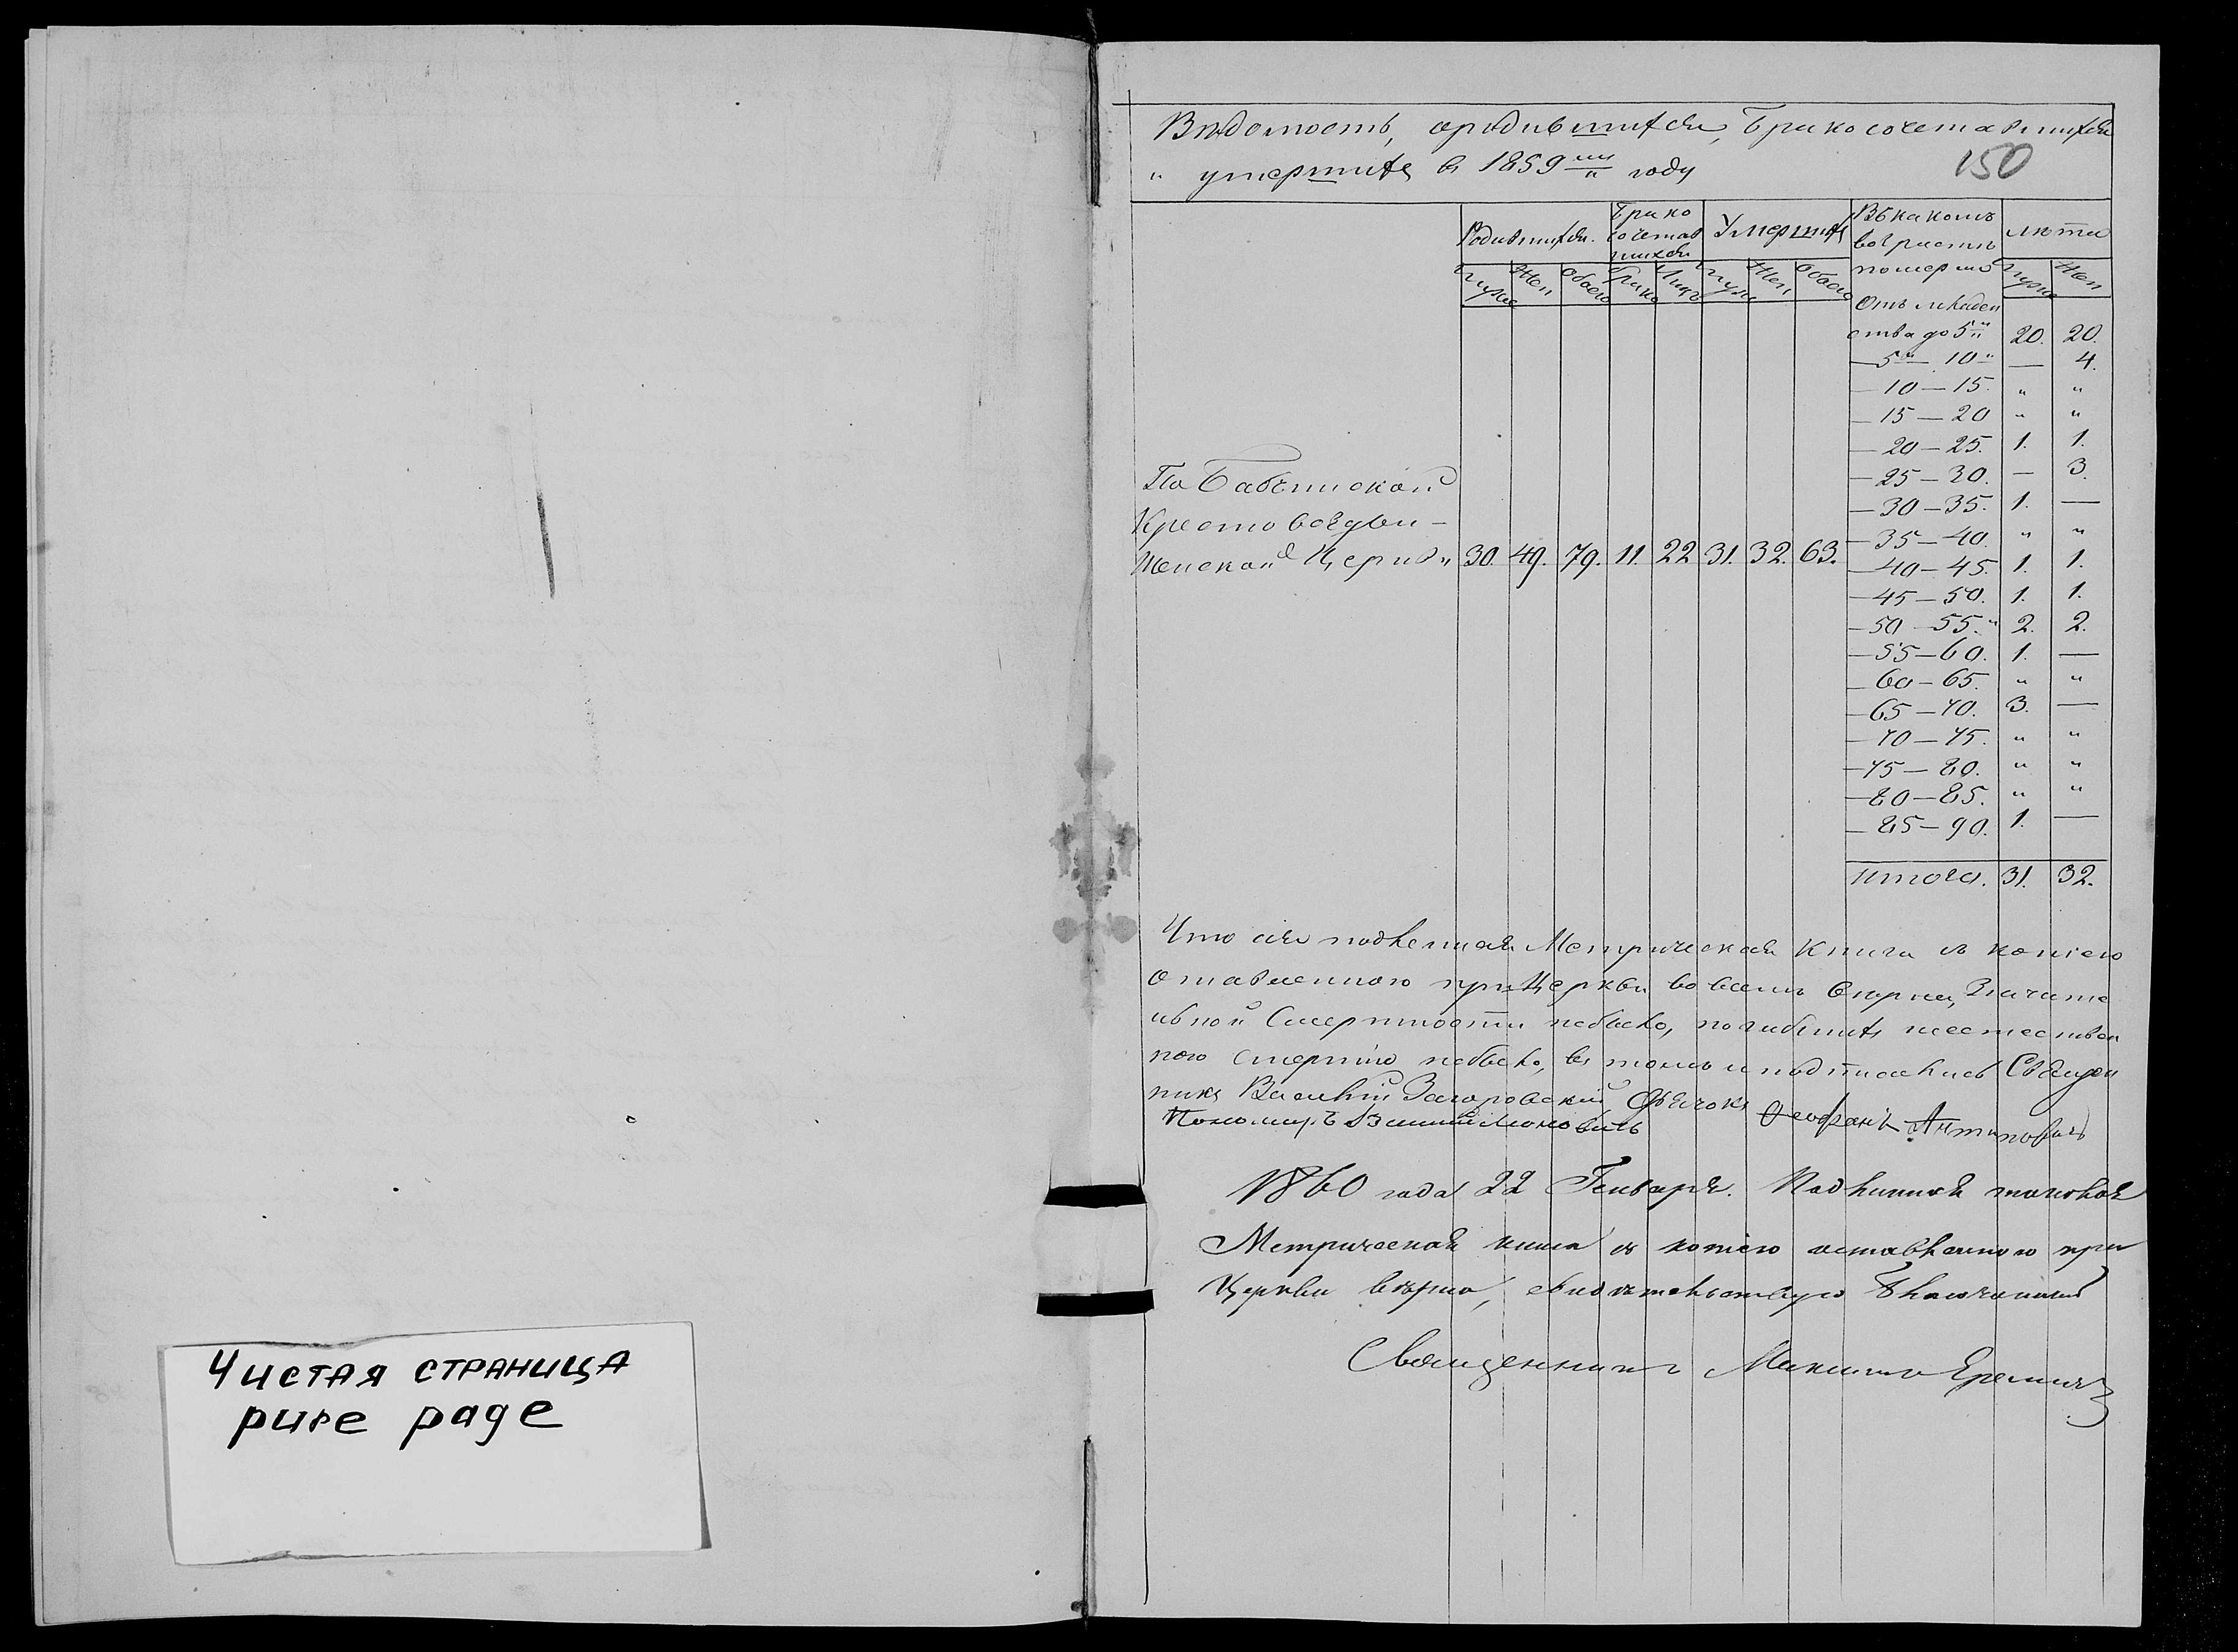 Чистая страница
pure page
Вѣдомость, о родившихся, Бракосочетавшихся
и умершихъ въ 1859мъ году
150
Родившихся. Брако сочетав шихся Умершихъ Въ какомъ возрастѣ померло лѣта
Муже Жен Обоего Брако Лицъ Муж Жен Обоего Муже Жен
Отъ младен
ства до 5 20. 20.
— 5 — 10 — 4.
— 10 — 15. " "
— 15 — 20 " "
— 20 — 25. 1. 1.
— 25 — 30. — 3.
— 30 — 35. 1. —
— 35 — 40. " "
— 40 — 45. 1. 1.
— 45 — 50. 1. 1.
— 50 — 55. 2. 2.
— 55 — 60. 1. —
— 60 — 65. " "
— 65 — 70. 3. —
— 70 — 75. " "
— 75 — 80. " "
— 80 — 85. " "
— 85 — 90. 1. —
итого. 31. 32.
По Бабчинской
Крестовоздви-
женской Церкви 30. 49. 79. 11. 22 31. 32. 63.
Что сія подленная Метрическая Книга съ копіею
оставленною при Церкви во всемъ верна, Значите
льной Смертности небыло, погибшихъ неестествен
ною смертію небыло, въ томъ и подписались Священ
никъ Василій Загоровский Дьячокъ Феофанъ Антиповичъ
Пономаръ
1860 года 22 Генваря. Подлинная таковая
Метрическая книга съ копіею оставленною при
Церкви вѣрна, свидѣтельствую Благочинный
Священникъ Максимъ Еремичъ